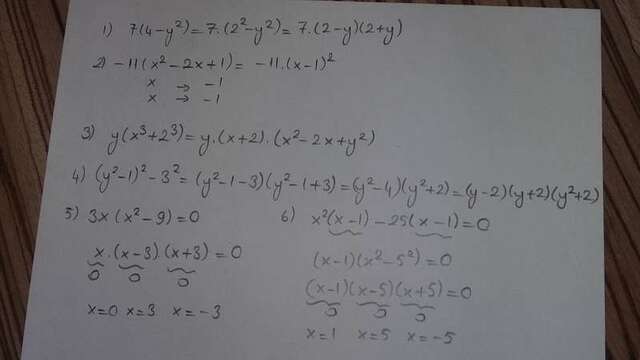 1) 7.(4-y²) = 7.(2²-y²) = 7.(2-y)(2+y)
2) -11(x²-2x+1) = -11.(x-1)²
x → -1
x → -1
3) y(x³+2³) = y.(x+2).(x²-2x+y²)
4) (y²-1)²-3² = (y²-1-3)(y²-1+3) = (y²-4)(y²+2) = (y-2)(y+2)(y²+2)
5) 3x(x²-9)=0
x.(x-3)(x+3)=0
0 0 0
x=0 x=3 x=-3
6) x²(x-1)-25(x-1)=0
(x-1)(x²-5²)=0
(x-1)(x-5)(x+5)=0
0 0 0
x=1 x=5 x=-5